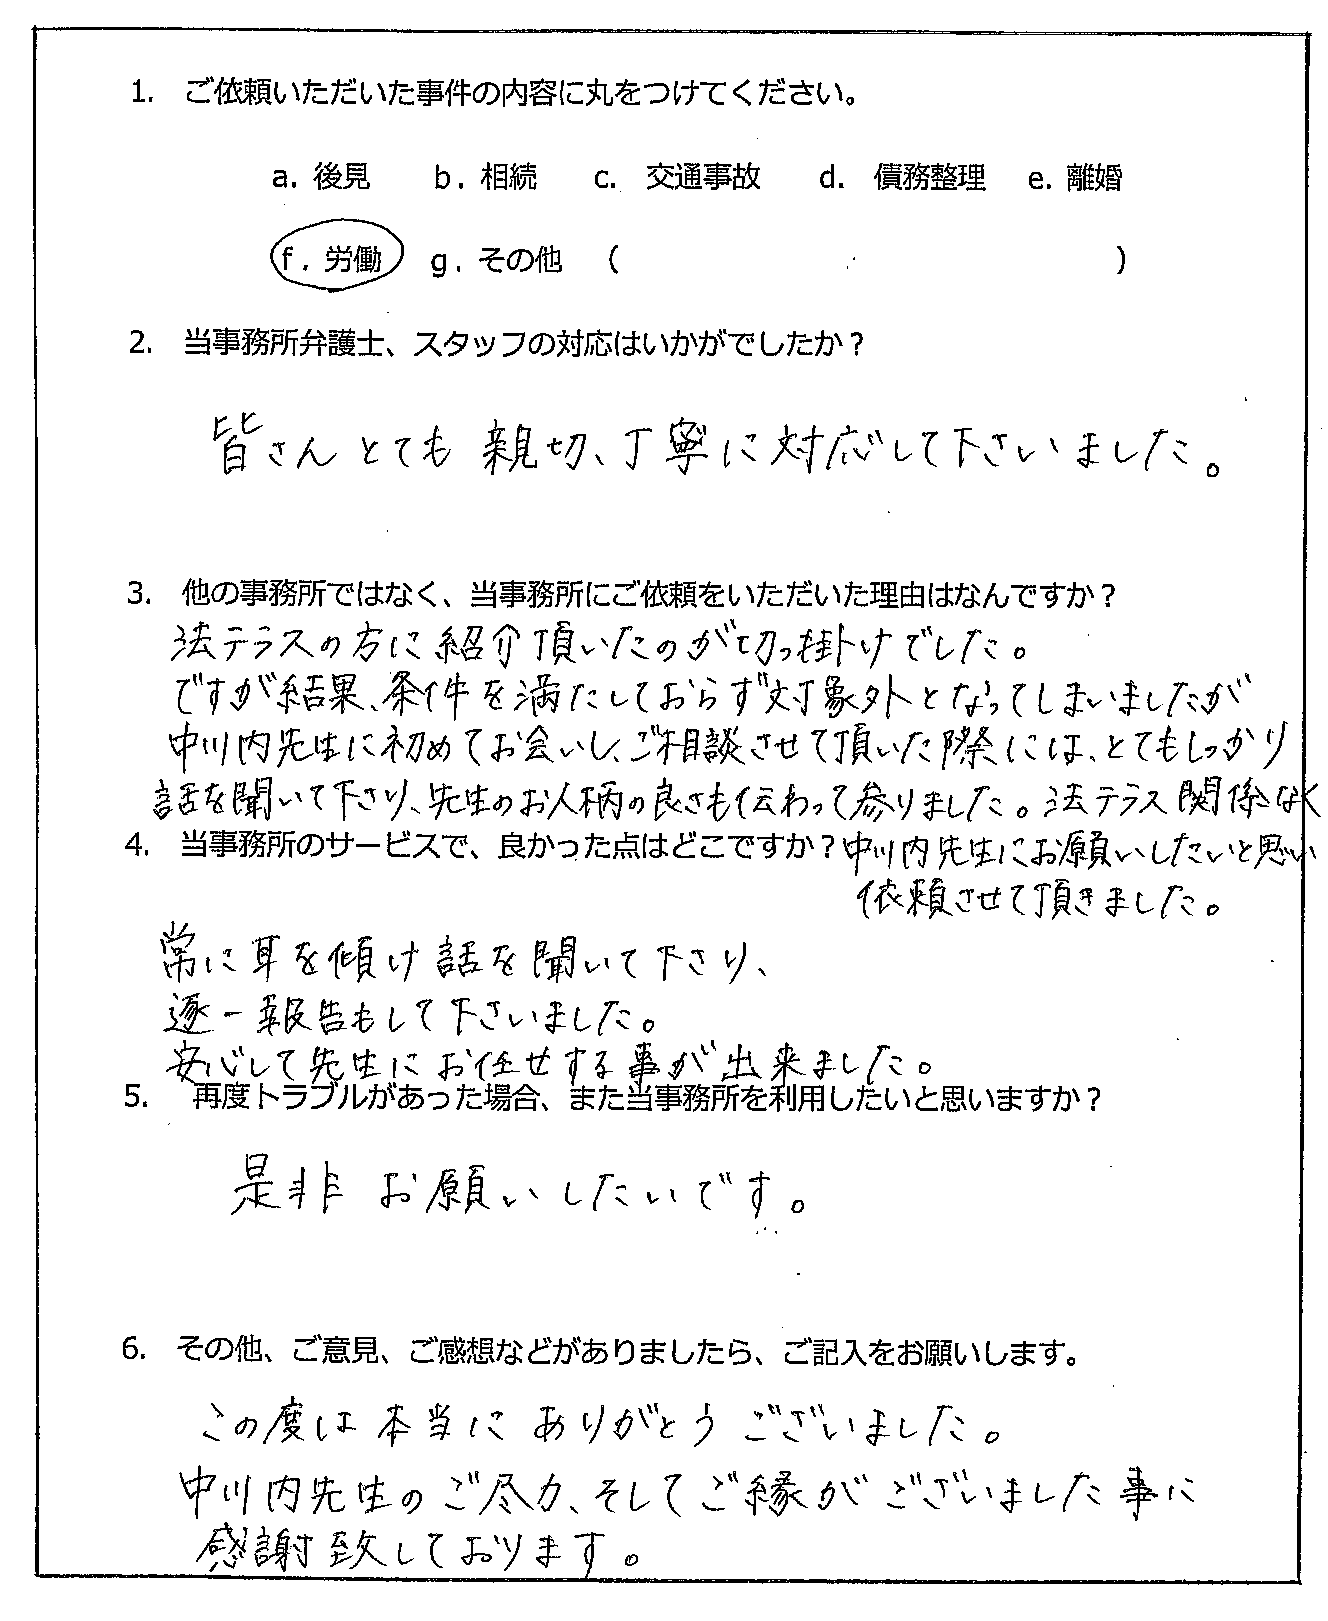 1. ご依頼いただいた事件の内容に丸をつけてください。
a. 後見 b. 相続 c. 交通事故 d. 債務整理 e. 離婚
f. 労働 g. その他 ( )
2. 当事務所弁護士、スタッフの対応はいかがでしたか？
皆さんとても親切、丁寧に対応して下さいました。
3. 他の事務所ではなく、当事務所にご依頼をいただいた理由はなんですか？
法テラスの方に紹介頂いたのが切っ掛けでした。
ですが結果、条件を満たしておらず対象外となってしまいましたが
中川内先生に初めてお会いし、ご相談させて頂いた際には、とてもしっかり
話を聞いて下さり、先生のお人柄の良さも伝わって参りました。法テラス関係なく
4. 当事務所のサービスで、良かった点はどこですか？
中川内先生にお願いしたいと思い
依頼させて頂きました。
常に耳を傾け話を聞いて下さり、
逐一報告もして下さいました。
安心して先生にお任せする事が出来ました。
5. 再度トラブルがあった場合、また当事務所を利用したいと思いますか？
是非お願いしたいです。
6. その他、ご意見、ご感想などがありましたら、ご記入をお願いします。
この度は本当にありがとうございました。
中川内先生のご尽力、そしてご縁がございました事に
感謝致しております。